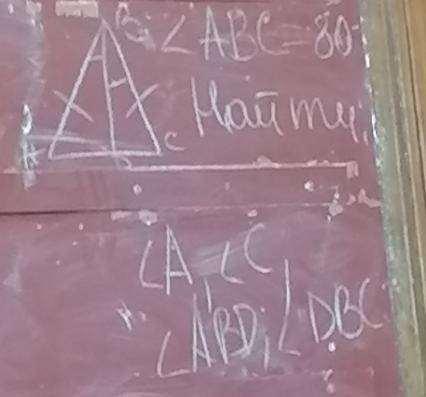 B ∠ABC=80°
Найти,
A C
∠A, ∠C
∠ABD; ∠DBC